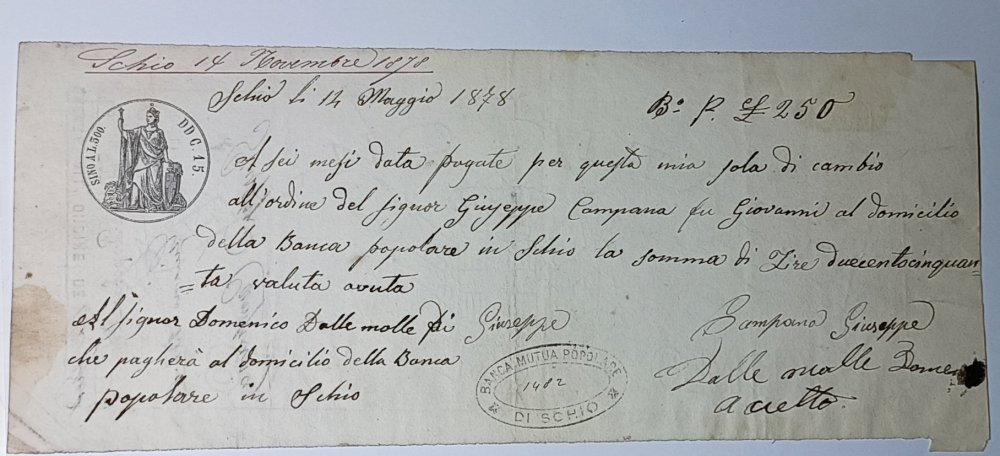 Schio 14 Novembre 1878
Schio li 14 Maggio 1878
Bº P. £ 250
SINO A L. 500.
DD C. 15.
A sei mesi data pagate per questa mia sola di cambio
all'ordine del signor Giuseppe Campana fu Giovanni al domicilio
della Banca popolare in Schio la somma di Lire duecentocinquan=
=ta valuta avuta
Al signor Domenico Dalle molle di Giuseppe
che pagherà al domicilio della Banca
popolare in Schio
Campana Giuseppe
Dalle molle Domen
accetto.
BANCA MUTUA POPOLARE
1402
DI SCHIO